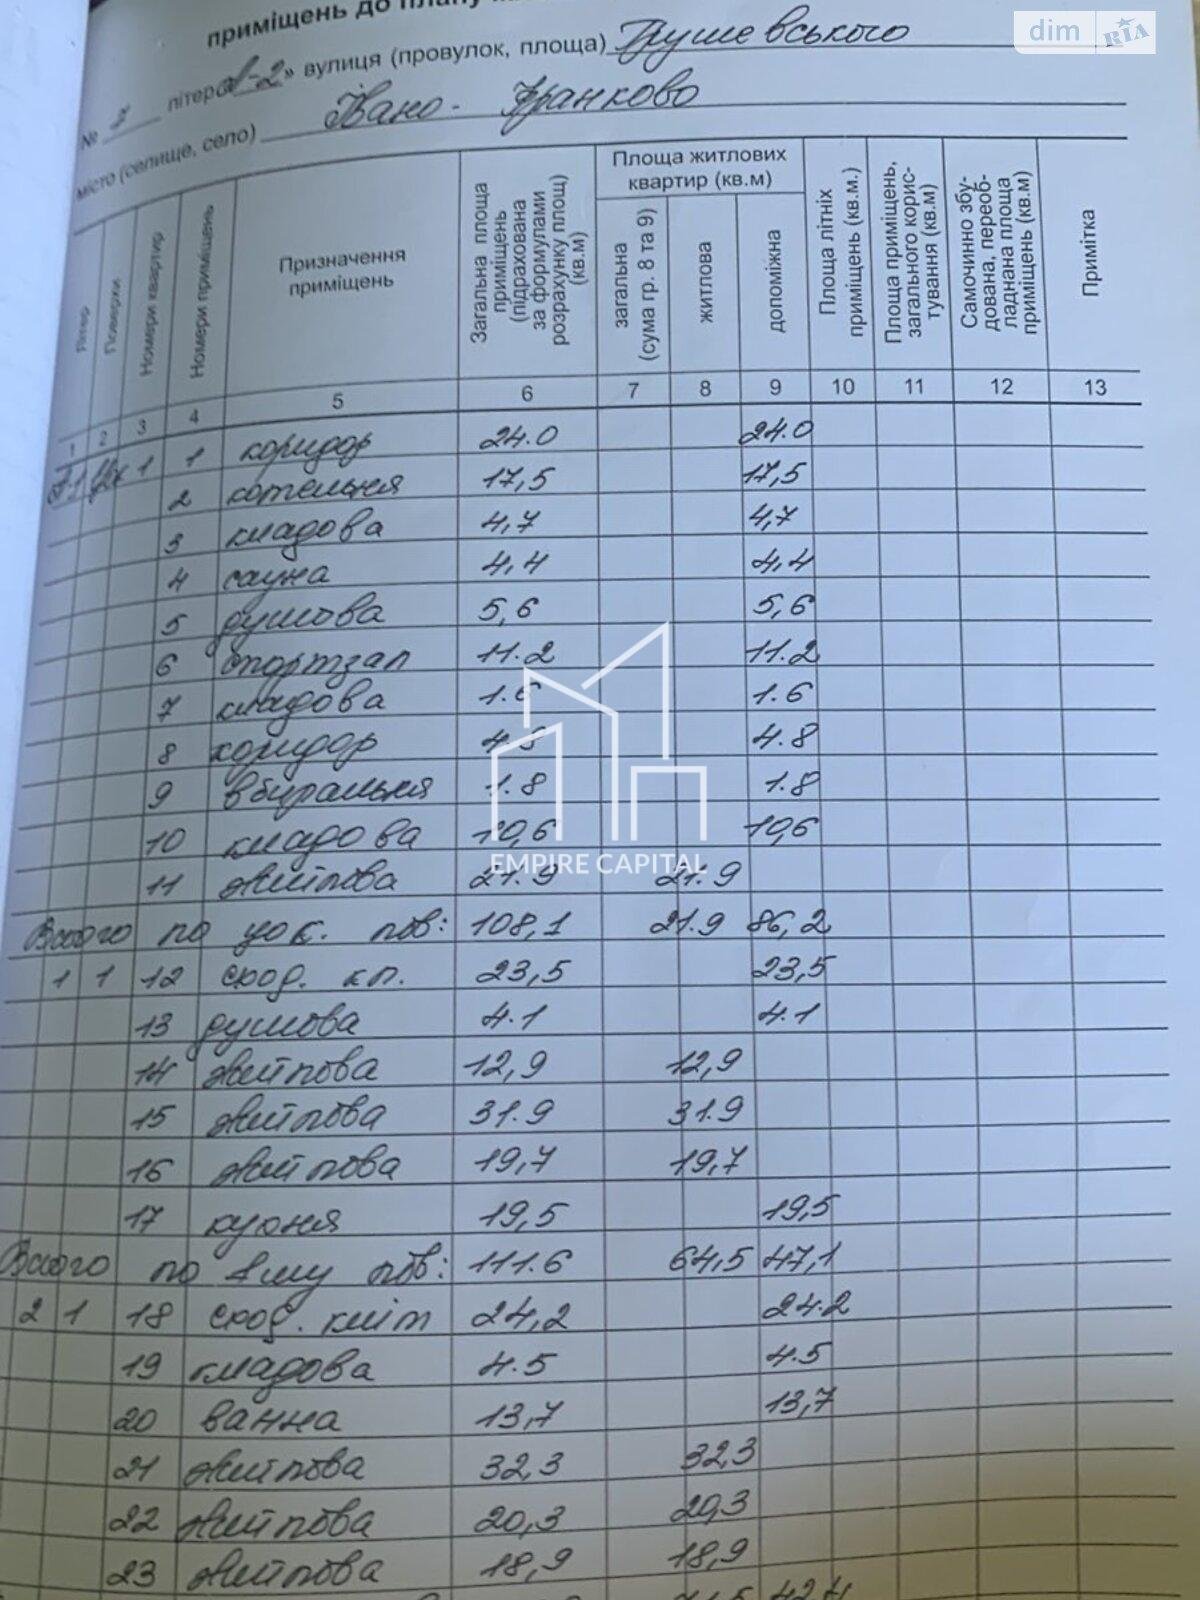 приміщень до плану
№ 2 літера «А-2» вулиця (провулок, площа) Грушевського
місто (селище, село) Івано-Франково
dim RIA
Літер
Поверхи
Номери квартир
Номери приміщень
Призначення приміщень
Загальна площа приміщень (підрахована за формулами розрахунку площ) (кв.м)
Площа житлових квартир (кв.м)
загальна (сума гр. 8 та 9)
житлова
допоміжна
Площа літніх приміщень (кв.м.)
Площа приміщень, загального користування (кв.м)
Самочинно збудована, переобладнана площа приміщень (кв.м)
Примітка
1 2 3 4 5 6 7 8 9 10 11 12 13
1 1 коридор 24.0 24.0
2 котельня 17,5 17,5
3 кладова 4,7 4,7
4 сауна 4,4 4,4
5 душова 5,6 5,6
6 спортзал 11.2 11.2
7 кладова 1.6 1.6
8 коридор 4.8 4.8
9 вбиральня 1.8 1.8
10 кладова 10,6 10,6
EMPIRE CAPITAL
11 житлова 21.9 21.9
Всього по цок. пов: 108,1 21.9 86,2
1 1 12 сход. кл. 23,5 23,5
13 душова 4.1 4.1
14 житлова 12,9 12,9
15 житлова 31.9 31.9
16 житлова 19,7 19,7
17 кухня 19,5 19,5
Всього по 1му пов: 111.6 64,5 47,1
2 1 18 сход. кліт 24,2 24.2
19 кладова 4.5 4.5
20 ванна 13,7 13,7
21 житлова 32,3 32,3
22 житлова 20,3 20,3
23 житлова 18,9 18,9